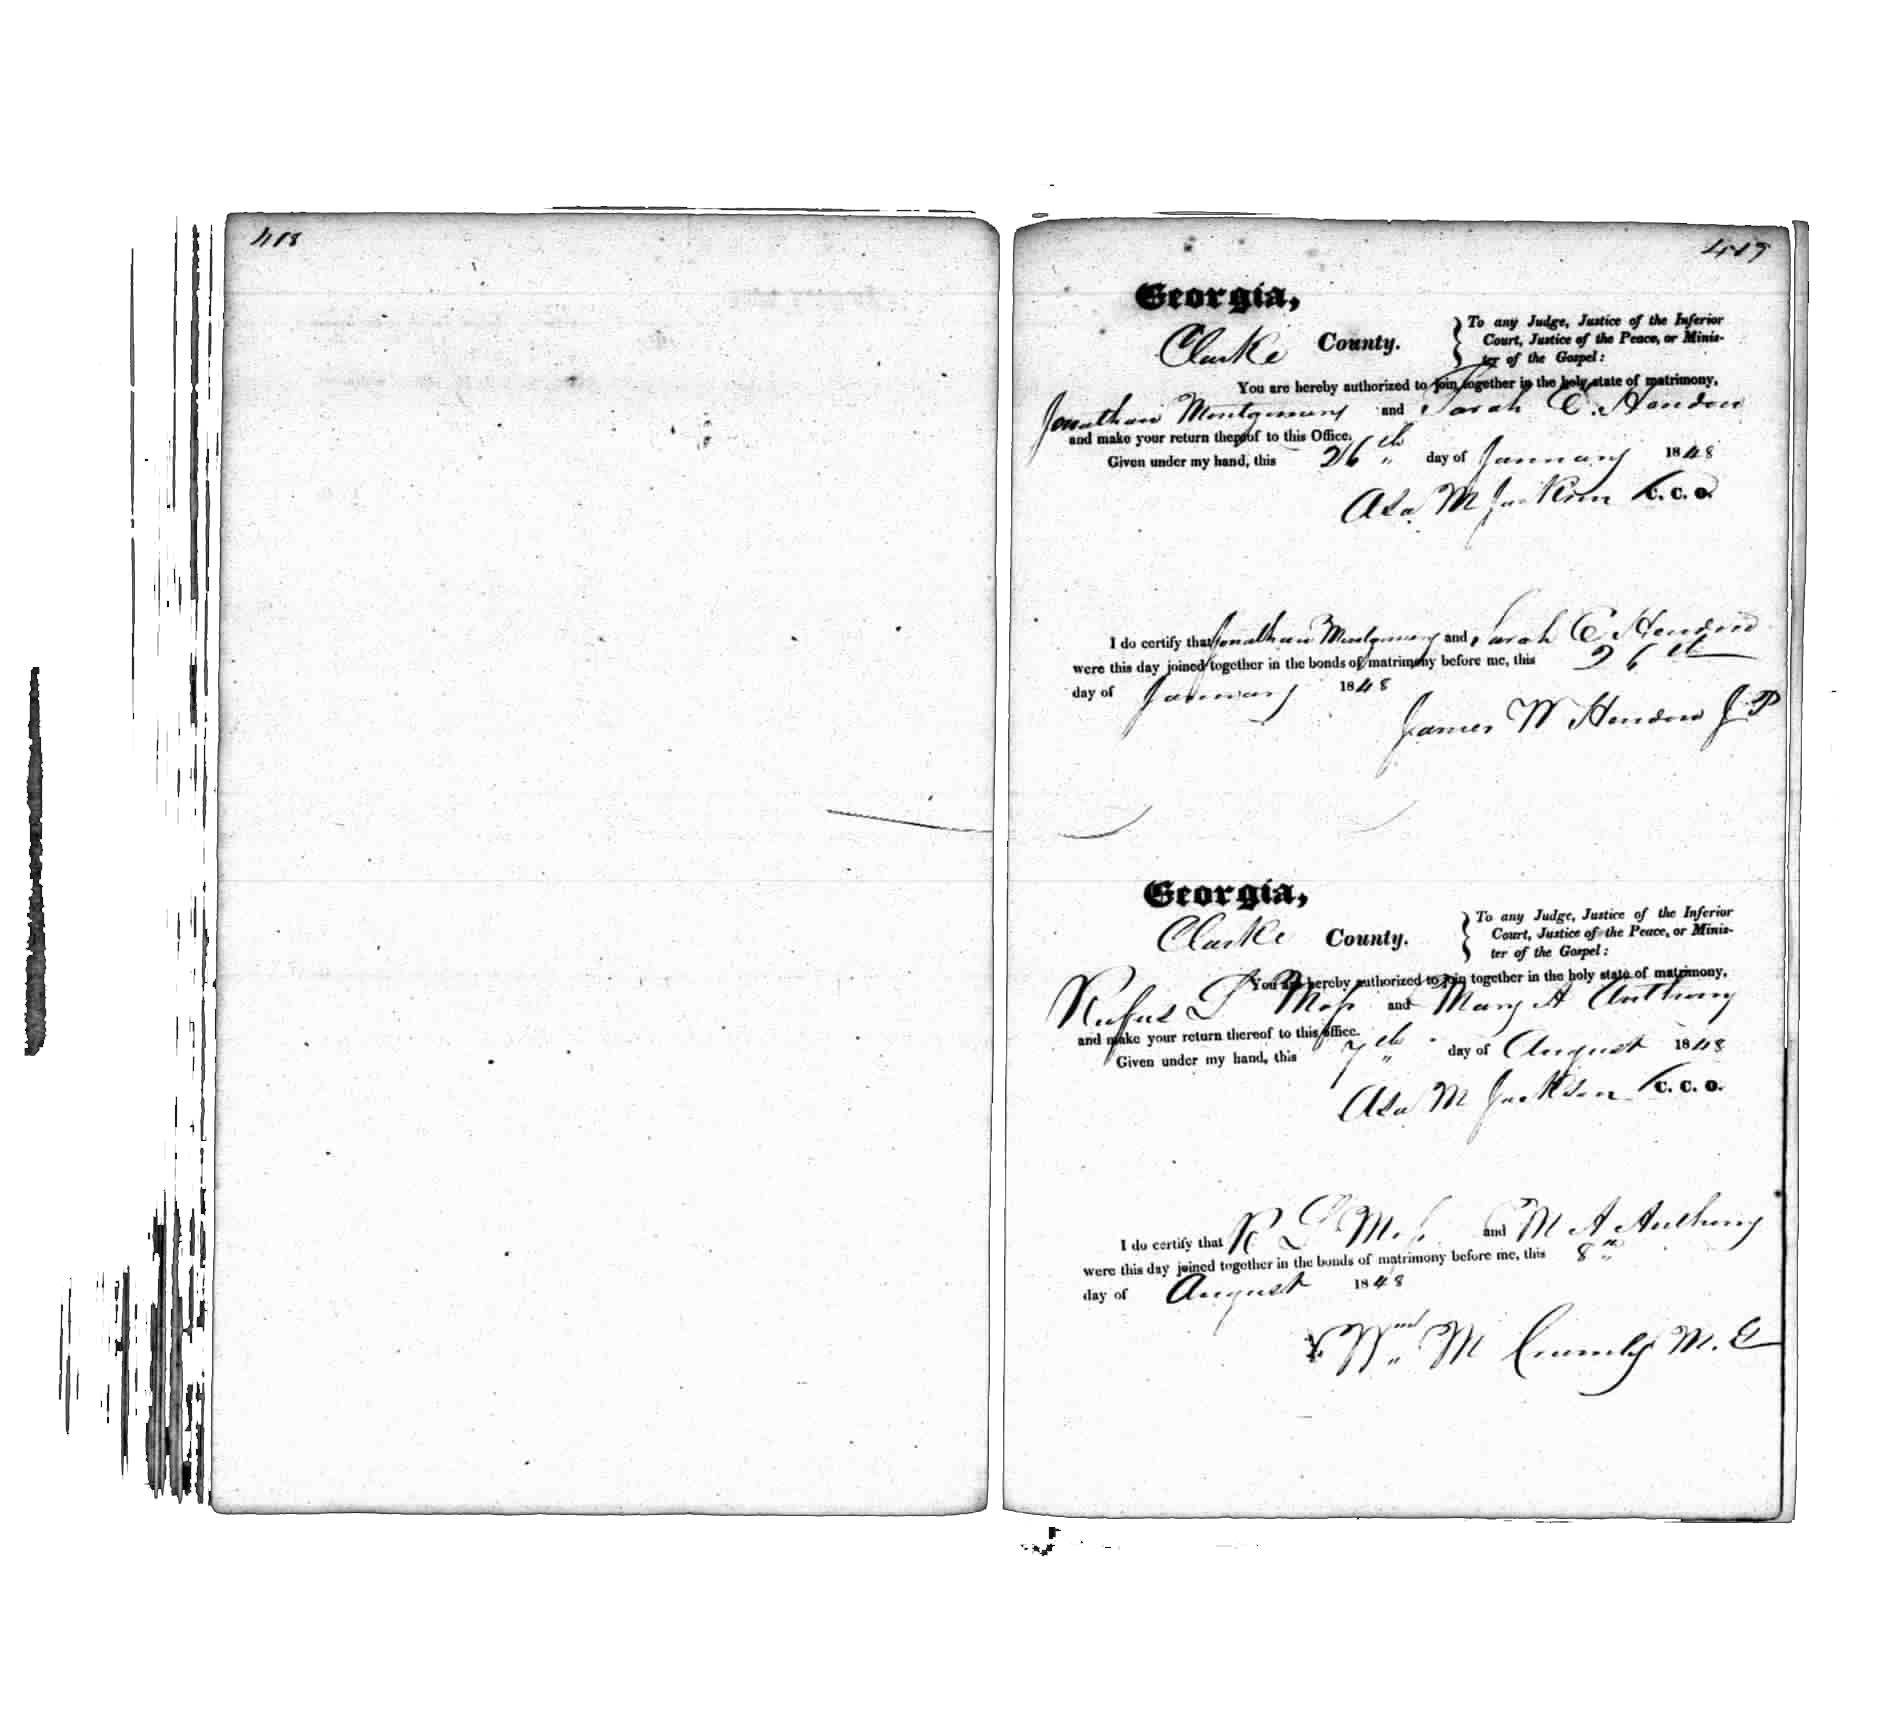 418
419
Georgia,
Clarke County.
To any Judge, Justice of the Inferior
Court, Justice of the Peace, or Minis-
ter of the Gospel:
You are hereby authorized to join together in the holy state of matrimony,
Jonathan Montgomery and Sarah E. Hendon
and make your return thereof to this Office.
Given under my hand, this 26th day of January 1848
Asa M Jackson C. C. O.
I do certify that Jonathan Montgomery and Sarah E Hendon
were this day joined together in the bonds of matrimony before me, this 26th
day of January 1848
James W Hendon J P
Georgia,
Clarke County.
To any Judge, Justice of the Inferior
Court, Justice of the Peace, or Minis-
ter of the Gospel:
You are hereby authorized to join together in the holy state of matrimony,
Rufus L Moss and Mary A Anthony
and make your return thereof to this office.
Given under my hand, this 7th day of August 1848
Asa M Jackson C. C. O.
I do certify that R L Moss and M A Anthony
were this day joined together in the bonds of matrimony before me, this 8th
day of August 1848
Wm M Crumly M. E